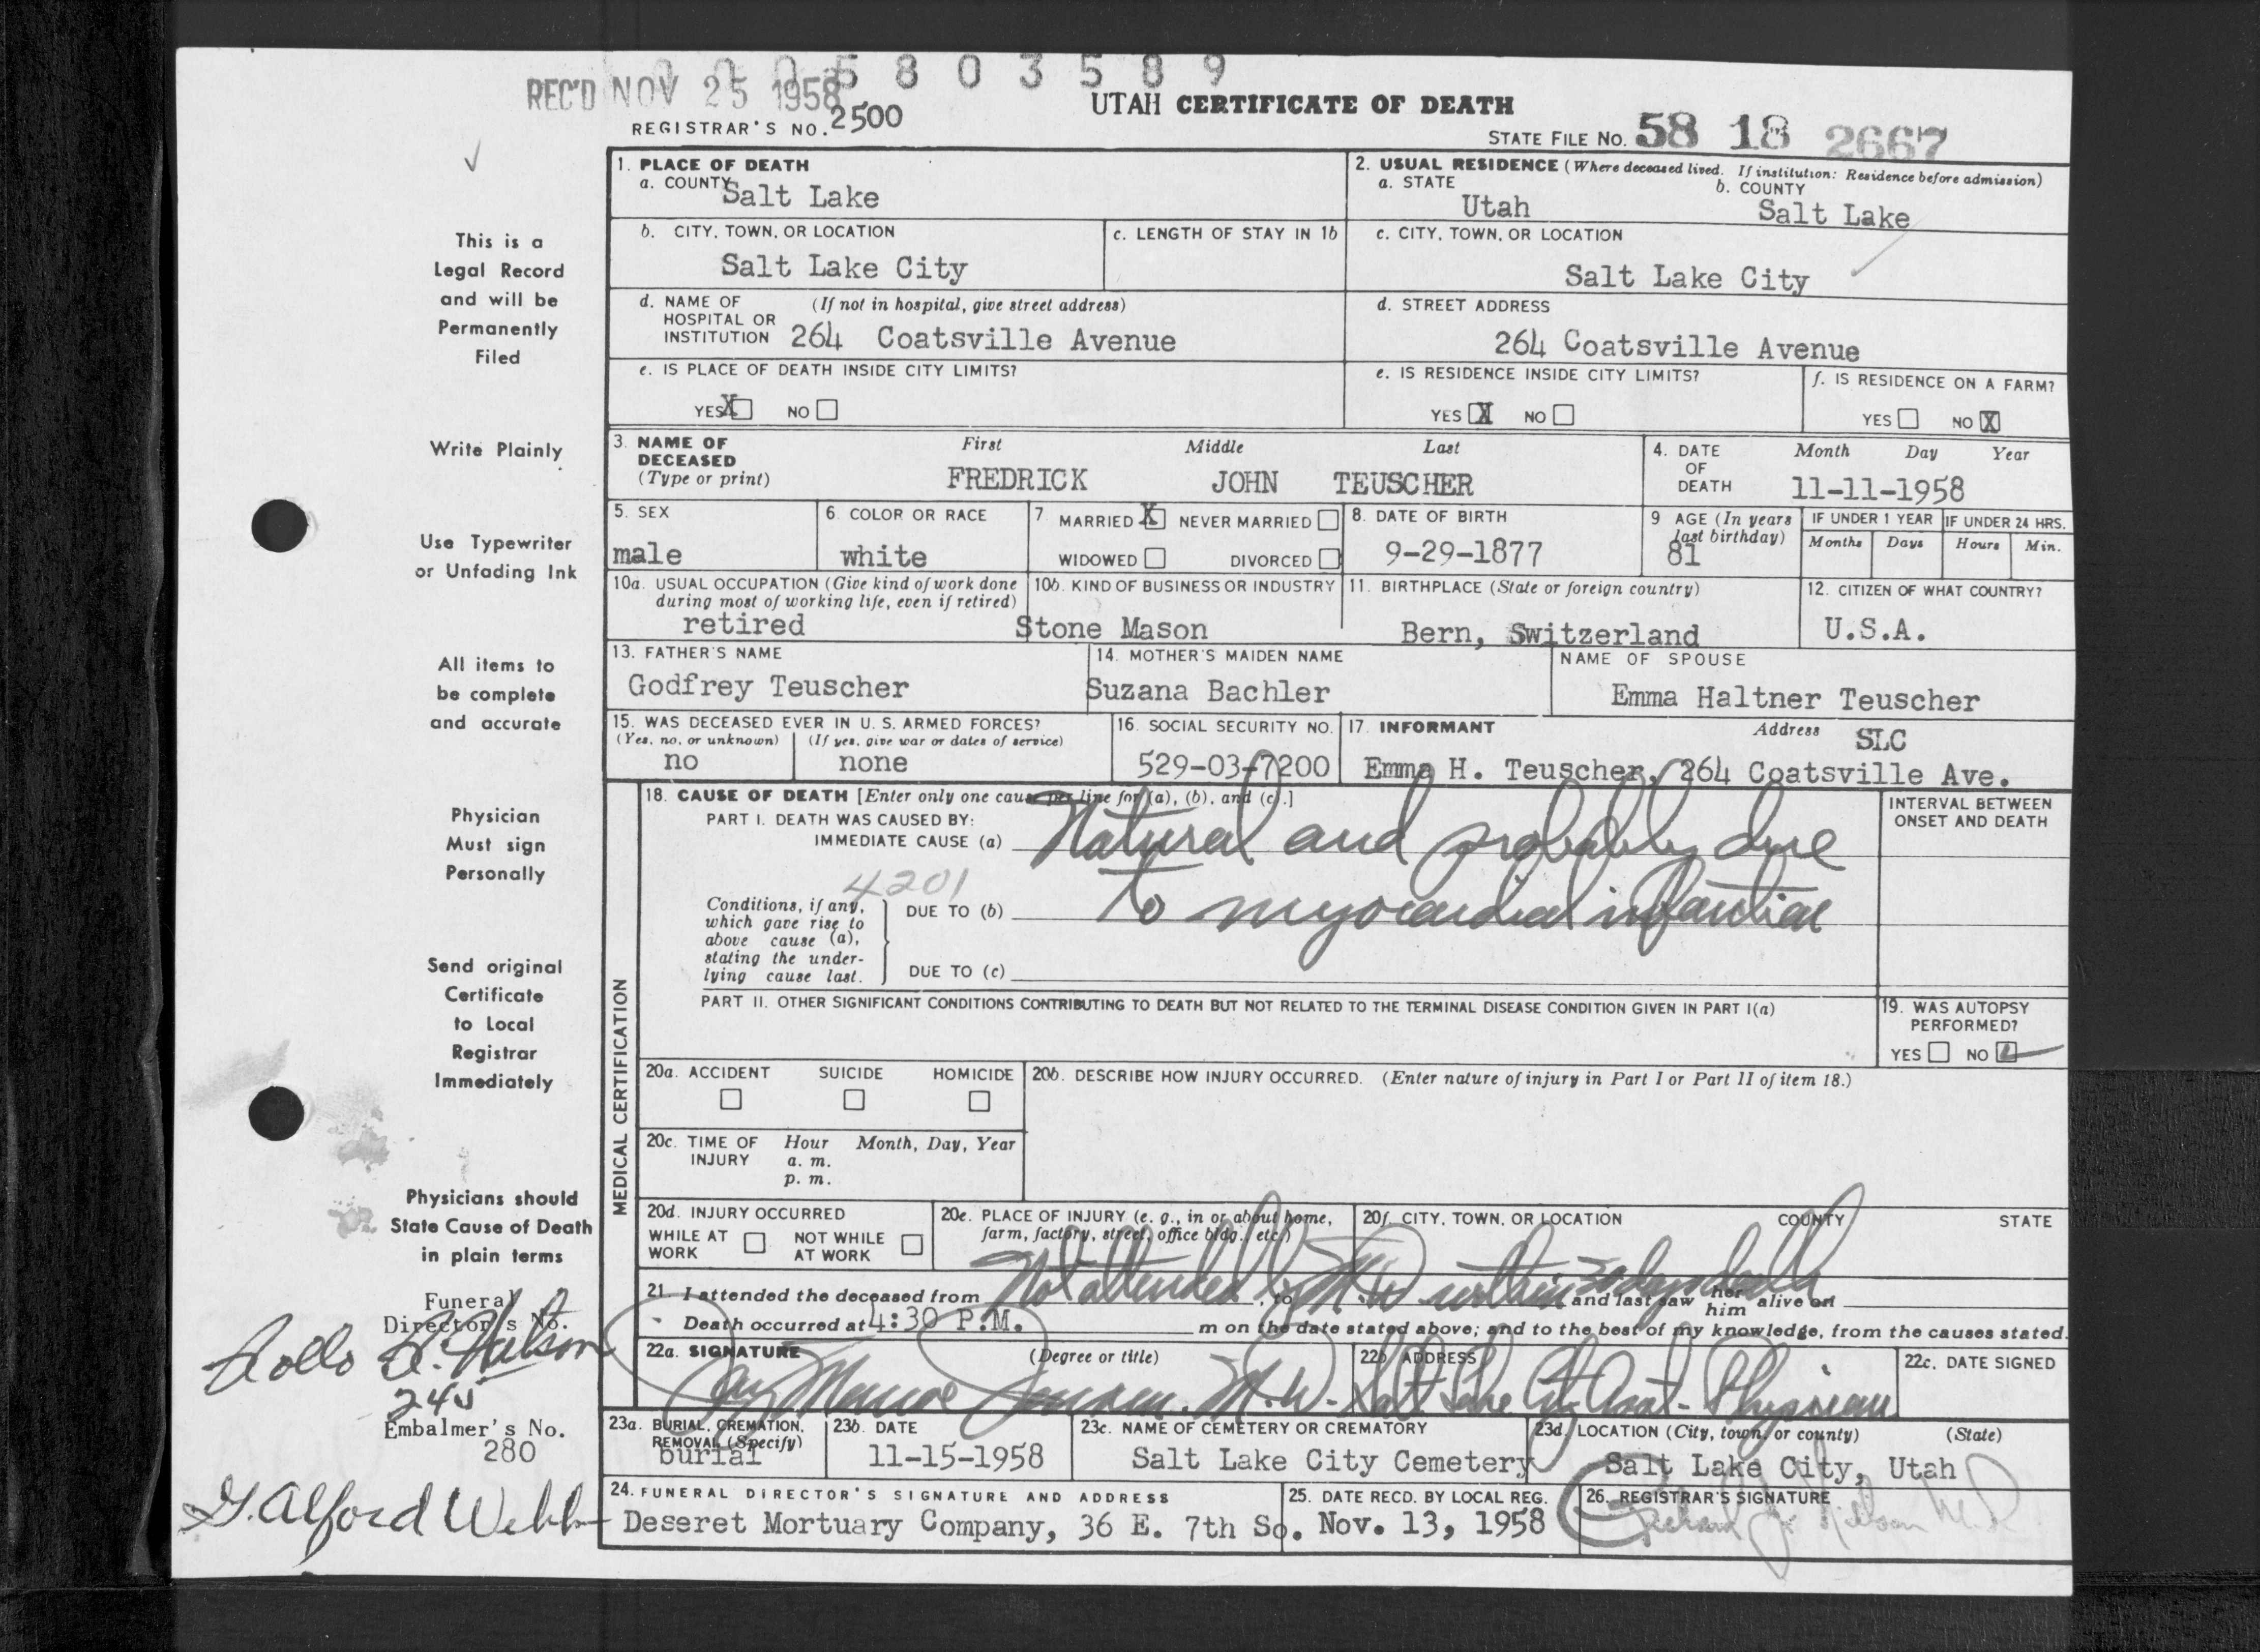 0 0 0 5 8 0 3 5 8 9
REC'D NOV 25 1958
UTAH CERTIFICATE OF DEATH
REGISTRAR'S NO. 2500
STATE FILE NO. 58 18 2667
This is a
Legal Record
and will be
Permanently
Filed
Write Plainly
Use Typewriter
or Unfading Ink
All items to
be complete
and accurate
Physician
Must sign
Personally
Send original
Certificate
to Local
Registrar
Immediately
Physicians should
State Cause of Death
in plain terms
Funeral
Director's No.
245
Embalmer's No.
280
G. Alford Webb
1. PLACE OF DEATH
a. COUNTY Salt Lake
b. CITY, TOWN, OR LOCATION
Salt Lake City
c. LENGTH OF STAY IN 1b
d. NAME OF HOSPITAL OR INSTITUTION (If not in hospital, give street address)
264 Coatsville Avenue
e. IS PLACE OF DEATH INSIDE CITY LIMITS?
YES X NO
2. USUAL RESIDENCE (Where deceased lived. If institution: Residence before admission)
a. STATE Utah b. COUNTY Salt Lake
c. CITY, TOWN, OR LOCATION
Salt Lake City
d. STREET ADDRESS
264 Coatsville Avenue
e. IS RESIDENCE INSIDE CITY LIMITS?
YES X NO
f. IS RESIDENCE ON A FARM?
YES NO X
3. NAME OF DECEASED (Type or print) First Middle Last
FREDRICK JOHN TEUSCHER
4. DATE OF DEATH Month Day Year
11-11-1958
5. SEX
male
6. COLOR OR RACE
white
7. MARRIED X NEVER MARRIED
WIDOWED DIVORCED
8. DATE OF BIRTH
9-29-1877
9 AGE (In years last birthday)
81
IF UNDER 1 YEAR
Months Days
IF UNDER 24 HRS.
Hours Min.
10a. USUAL OCCUPATION (Give kind of work done during most of working life, even if retired)
retired
10b. KIND OF BUSINESS OR INDUSTRY
Stone Mason
11. BIRTHPLACE (State or foreign country)
Bern, Switzerland
12. CITIZEN OF WHAT COUNTRY?
U.S.A.
13. FATHER'S NAME
Godfrey Teuscher
14. MOTHER'S MAIDEN NAME
Suzana Bachler
NAME OF SPOUSE
Emma Haltner Teuscher
15. WAS DECEASED EVER IN U. S. ARMED FORCES?
(Yes, no, or unknown) (If yes, give war or dates of service)
no none
16. SOCIAL SECURITY NO.
529-03-7200
17. INFORMANT Address SLC
Emma H. Teuscher, 264 Coatsville Ave.
MEDICAL CERTIFICATION
18. CAUSE OF DEATH [Enter only one cause per line for (a), (b), and (c).]
PART I. DEATH WAS CAUSED BY:
IMMEDIATE CAUSE (a) Natural and probably due
4201
Conditions, if any, which gave rise to above cause (a), stating the underlying cause last.
DUE TO (b) to myocardial infarction
DUE TO (c)
INTERVAL BETWEEN
ONSET AND DEATH
PART II. OTHER SIGNIFICANT CONDITIONS CONTRIBUTING TO DEATH BUT NOT RELATED TO THE TERMINAL DISEASE CONDITION GIVEN IN PART I(a)
19. WAS AUTOPSY
PERFORMED?
YES NO
20a. ACCIDENT SUICIDE HOMICIDE
20b. DESCRIBE HOW INJURY OCCURRED. (Enter nature of injury in Part I or Part II of item 18.)
20c. TIME OF INJURY Hour Month, Day, Year
a. m.
p. m.
20d. INJURY OCCURRED
WHILE AT WORK NOT WHILE AT WORK
20e. PLACE OF INJURY (e. g., in or about home,
farm, factory, street, office bldg., etc.)
20f. CITY, TOWN, OR LOCATION COUNTY STATE
21. I attended the deceased from Not attended by M.D. within 30 days death, to and last saw her him alive on
Death occurred at 4:30 P.M. m on the date stated above; and to the best of my knowledge, from the causes stated.
22a. SIGNATURE (Degree or title)
Jay Monroe M.D.
22b. ADDRESS
Salt Lake City Asst. Physician
22c. DATE SIGNED
23a. BURIAL, CREMATION,
REMOVAL (Specify)
burial
23b. DATE
11-15-1958
23c. NAME OF CEMETERY OR CREMATORY
Salt Lake City Cemetery
23d. LOCATION (City, town, or county) (State)
Salt Lake City, Utah
24. FUNERAL DIRECTOR'S SIGNATURE AND ADDRESS
Deseret Mortuary Company, 36 E. 7th So.
25. DATE RECD. BY LOCAL REG.
Nov. 13, 1958
26. REGISTRAR'S SIGNATURE